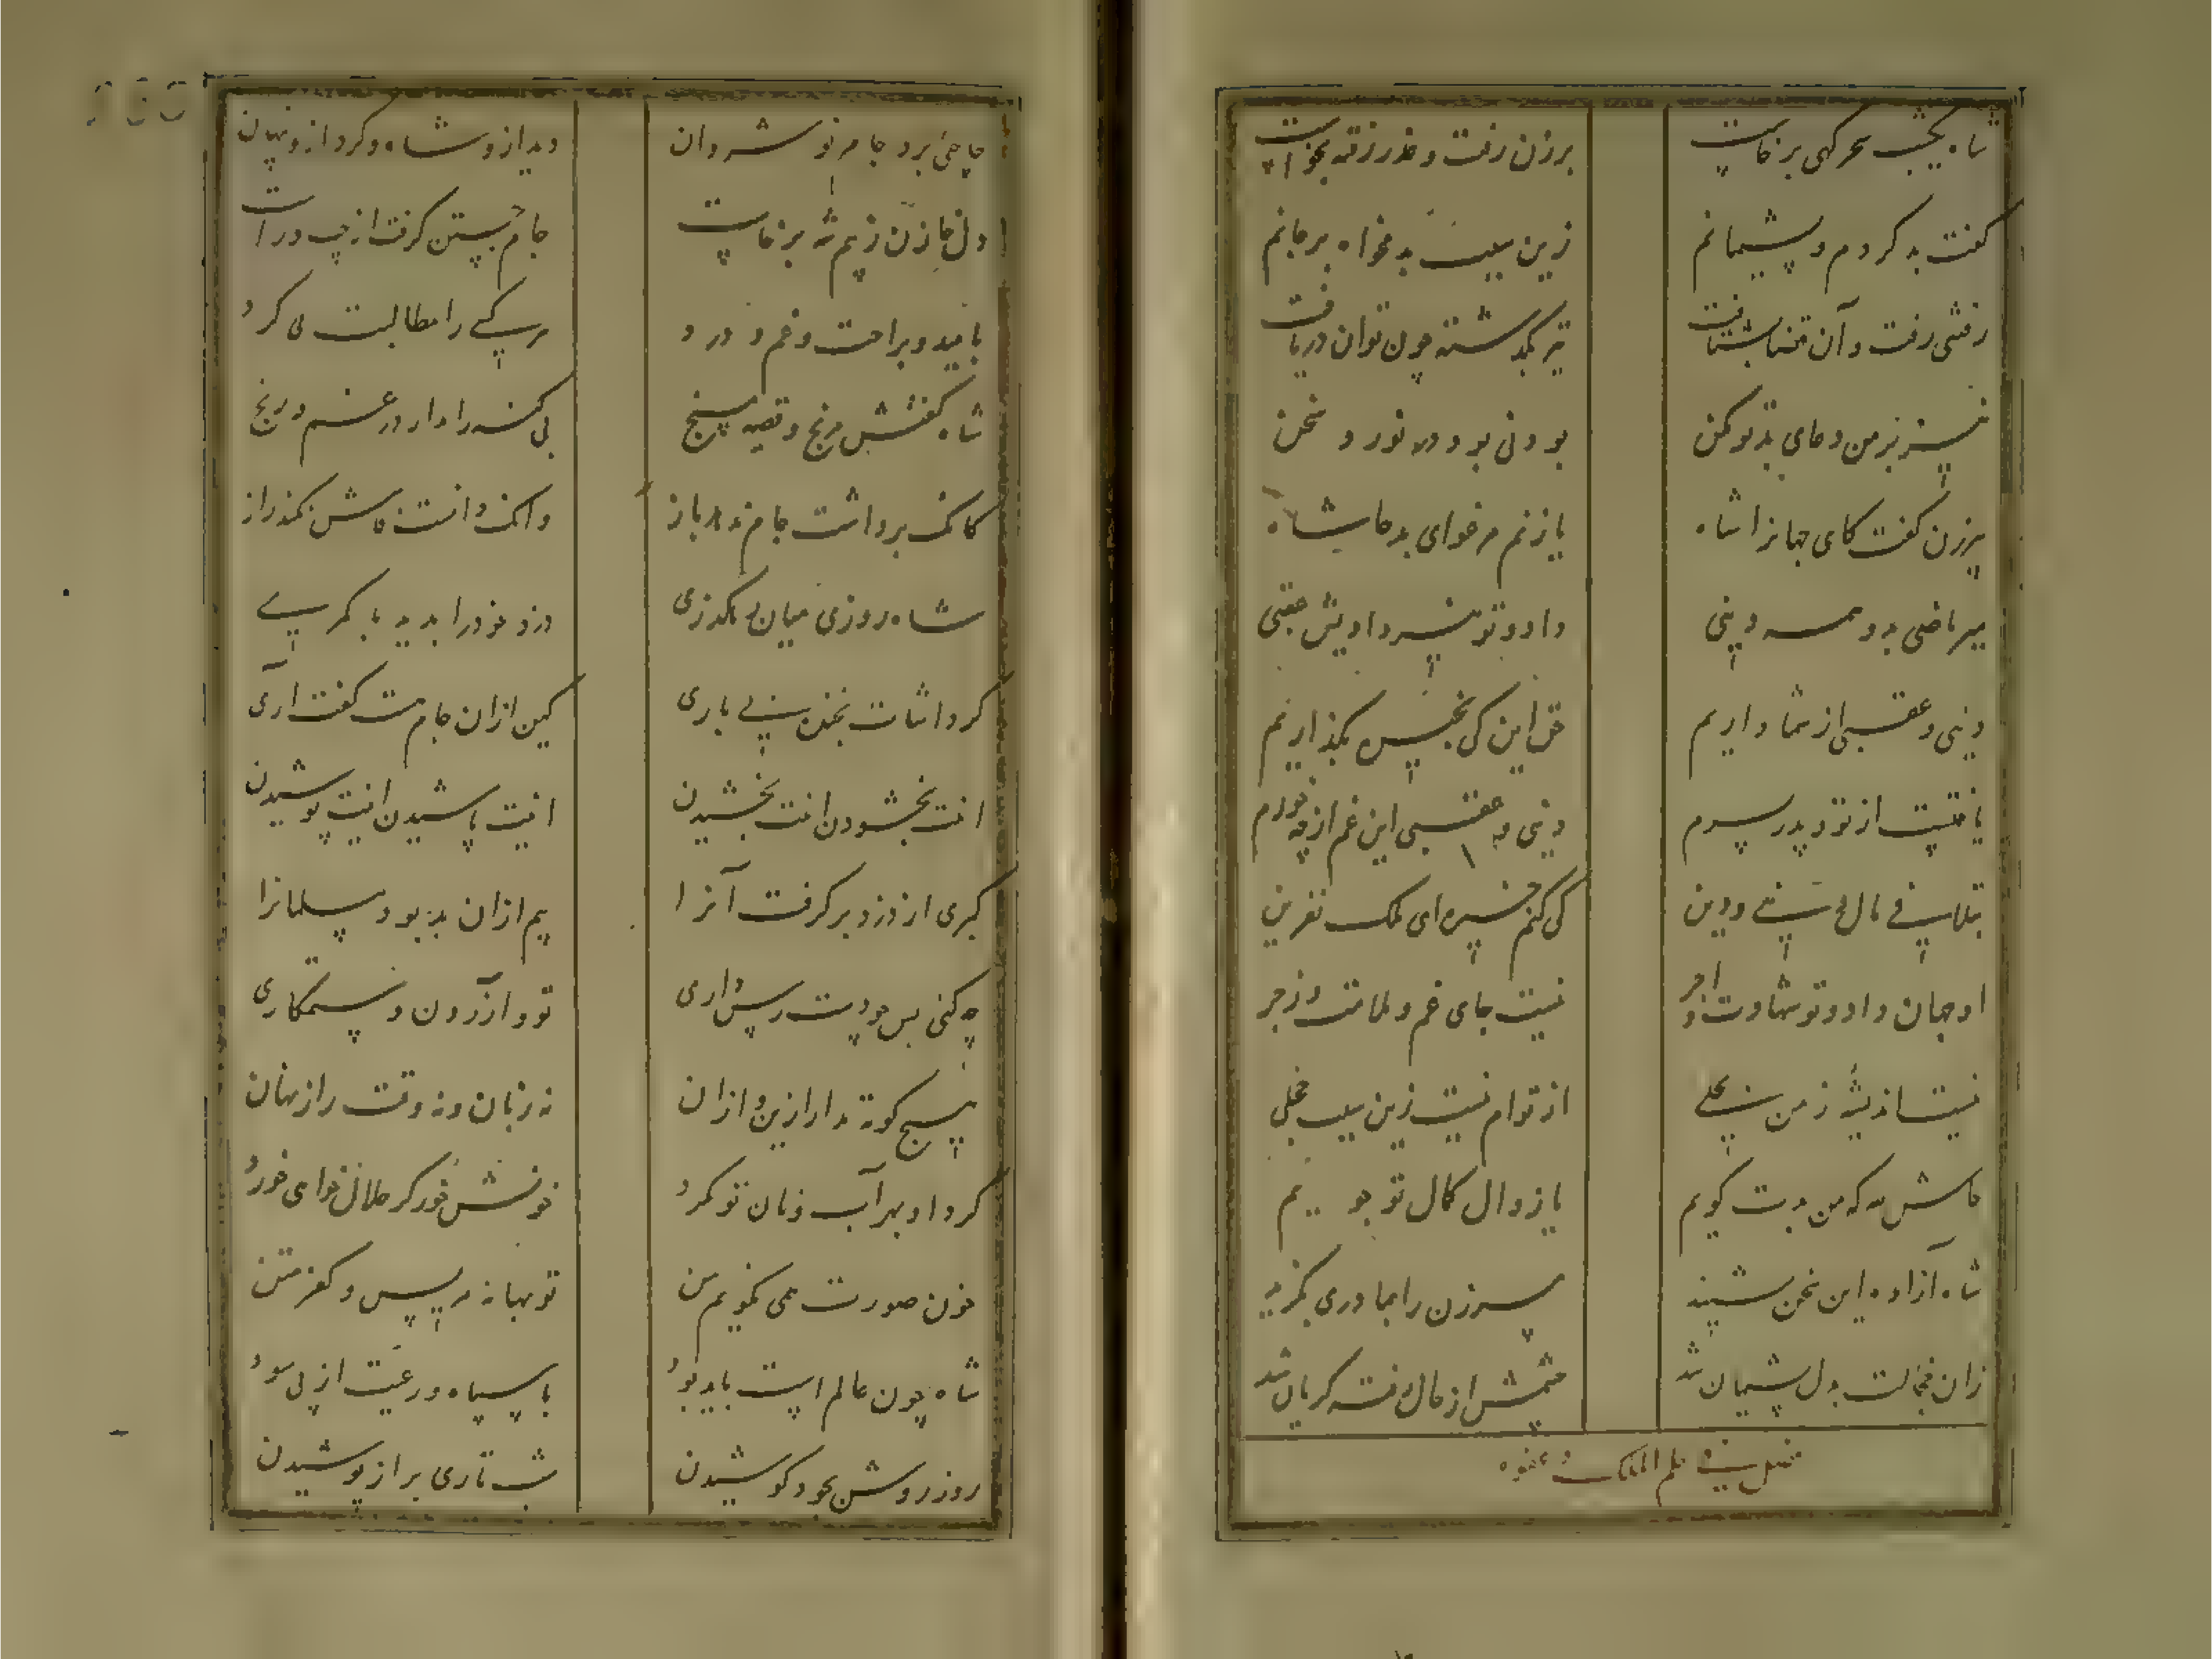 شاه یکشب سحرکهی برخاست
برزن رفت و عذر رفته بخواست
کفت بد کردم و پشیمانم
زین سبب بدمخواه بر جانم
رفتنی رفت و آن قضا بشتافت
تیر بکذشته چون توان دریافت
نیز بر من دعای بد تو مکن
بود نی بود در نورد سخن
پیرزن کفت کای جهانرا شاه
یا زنم مر خوای بدحاشاه
میر ماضی بدو همه دینی
داد و تو نیز داد یش عقبی
دینی و عقبی از شما داریم
حق این کی بخیره بکذاریم
یافتست از تو و پدر پسرم
دینی و عقبی این غم از چه خورم
بتلافی مال و پسنی و دین
کی کنم خیره ای ملک نفرین
او جهان داد و تو شهادت و اجر
نیست جای غم و ملامت و زجر
نیست اندیشه ز من بحلی
از توام نیست زین سبب خجلی
حاش لله که من بدت کویم
یا زوال کمال تو جویم
شاه آزاده این سخن بشنید
پیرزن را بمادری بکزید
زان خجالت بدل پشیمان شد
چشمش از حال رفته کریان شد
فصل فی حلم الملک و عفوه
چاجئی برد جام نوشروان
دید ازو شاه و کرد ازو نهان
دل خازن ز بیم شه برخاست
جام جستن کرفت از چپ و راست
بامید و براحت و غم و درد
هر کسی را مطالبت می کرد
شاه کفتش مرنج و قصه مسنج
بی کنه را مدار در غم و رنج
کانک برداشت جام ندهد باز
وانک دانست فاش نکند راز
شاه روزی میان رهکذری
درد خود را بدید با کمری
کرد اشارت بخنده پی باری
کین از آن جام هست کفت آری
اینت بخشودن اینت بخشیدن
اینت پاشیدن اینت پوشیدن
کبری از دزد بر کرفت آنرا
بیم از آن بد بود مسلمانرا
چه کنی بس چو دست رس داری
تو و آزردن و ستمکاری
هیچ کونه مدار ازین و از آن
نه زبان و نه وقت راز نهان
کرد او بهر آب و نان تو کرد
خونش خور کر حلال خواهی خورد
خون صورت همی نکویم من
تو بهانه مپرس و کفر متن
شاه چون عالم است باید بود
با سپاه و رعیت از پی سود
روز روشن بجود کوشیدن
شب تاری براز پوشیدن